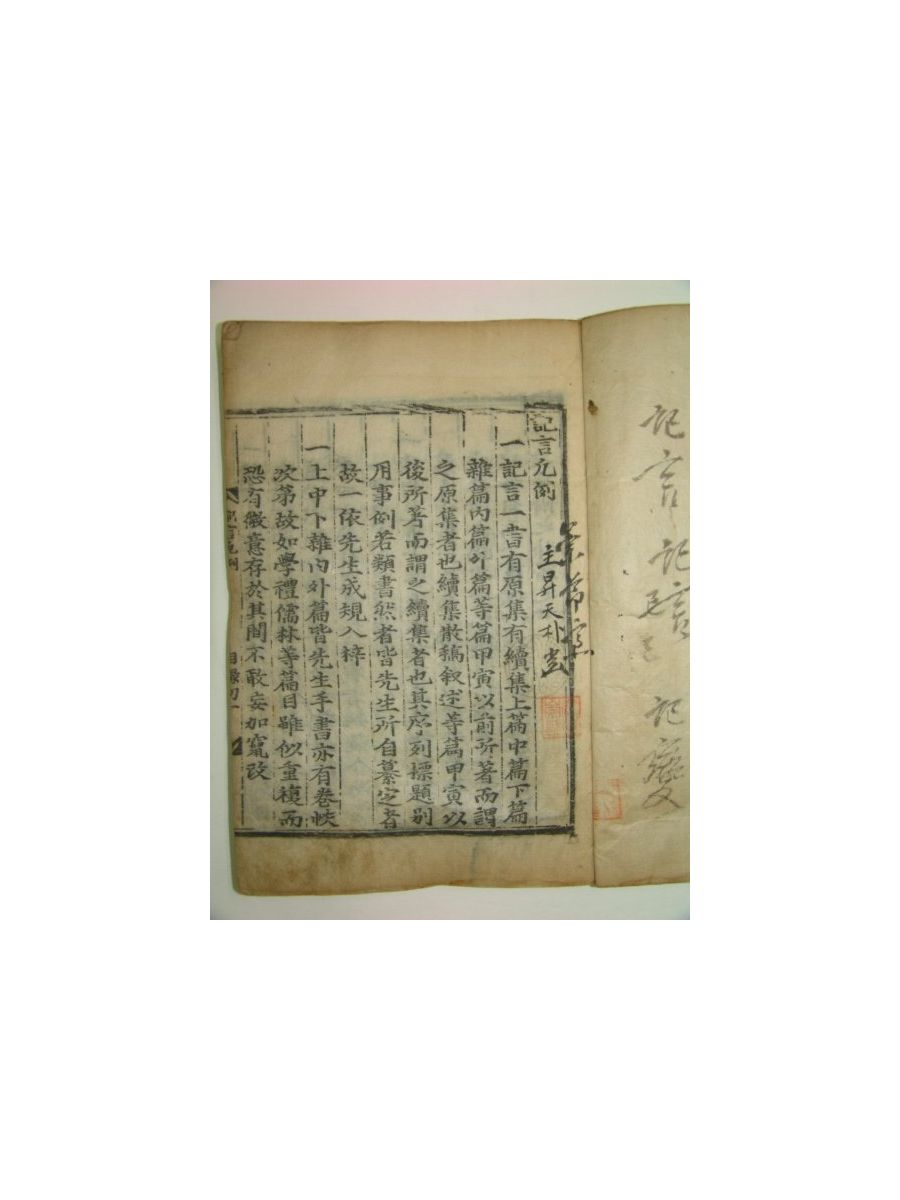 記言
記言
記變
記言凡例
主昇天朴
一記言一書有原集有續集上篇中篇下篇
雜篇內篇外篇等篇甲寅以前所著而謂
之原集者也續集散稿叙述等篇甲寅以
後所著而謂之續集者也其序列標題別
用事例若類書然者皆先生所自纂定者
故一依先生成規入梓
一上中下雜內外篇皆先生手書亦有卷帙
次第故如學禮儒林等篇目雖似重複而
恐有微意存於其間不敢妄加竄改
記言凡例